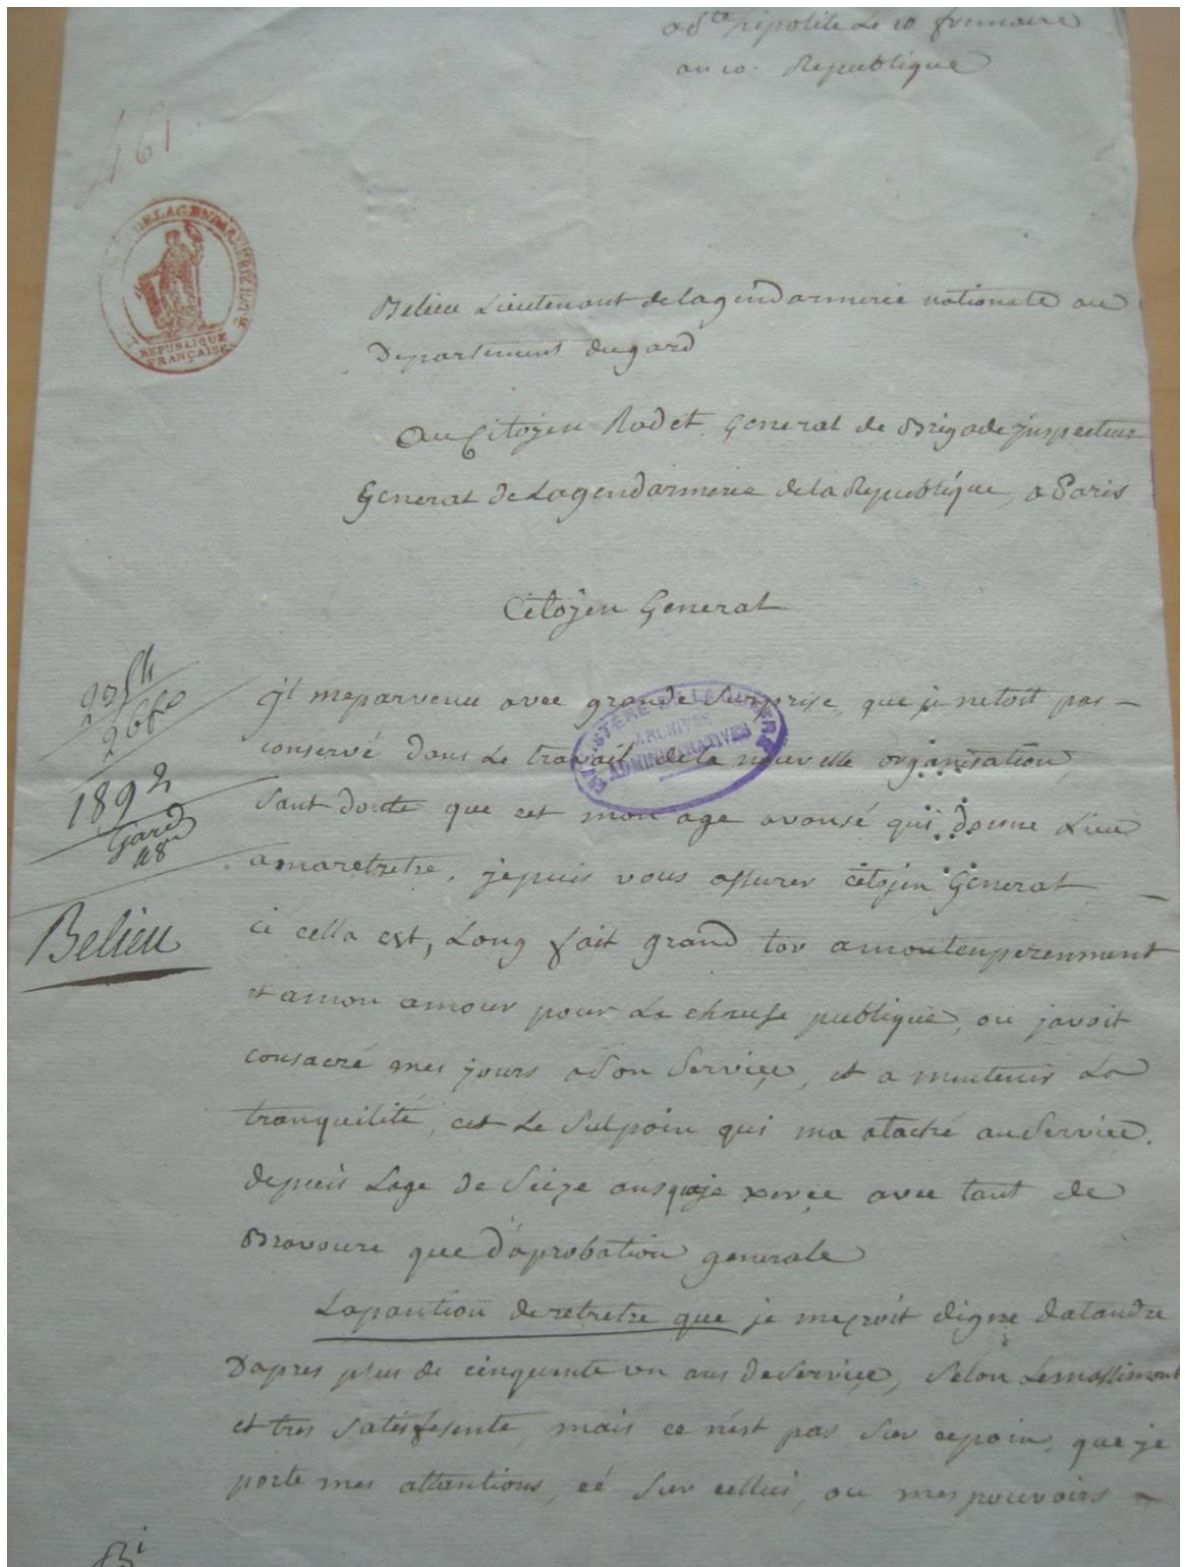 a Ste hipolite Le 10 frimaire
an 10. Republique
461
DE LA GENDARMERIE NATLE
REPUBLIQUE
FRANÇAISE
Belieu Lieutenant de lagendarmerie nationale au
Departement dugard
Au Citoyen Radet General de Brigade jnspecteur
General de Lagendarmerie dela Republique, a Paris
Citoyen General
MINISTÈRE DE LA GUERRE
ARCHIVES
ADMINISTRATIVES
jl meparvenu avec grande Surprise, que je netoit pas –
conservé dans Le travail dela nouvelle organisation,
Sant doute que cet mon age avansé qui donne Lieu
amaretretre, jepuis vous assurer citojen General –
ci cella est, Long fait grand tor amontemperemment
et amon amour pour La chause publique, ou javoit
consacré mes jours aSon Service, et a mintenir La
tranquilité, cet Le Sulpoin qui ma ataché auService.
depuis Lage de Seize ans
avec tant de
Bravoure que d'aprobation generale
Lapantion deretretre que je mecroit digne datandre
D'apres plus de cinquente un ans deService, Selon
et tres Satesfesente, mais ce n'est pas Sur cepoin, que je
porte mes attantions, cé Sur cellui, ou mes pouvoirs –
1892
Gard
18
Belieu